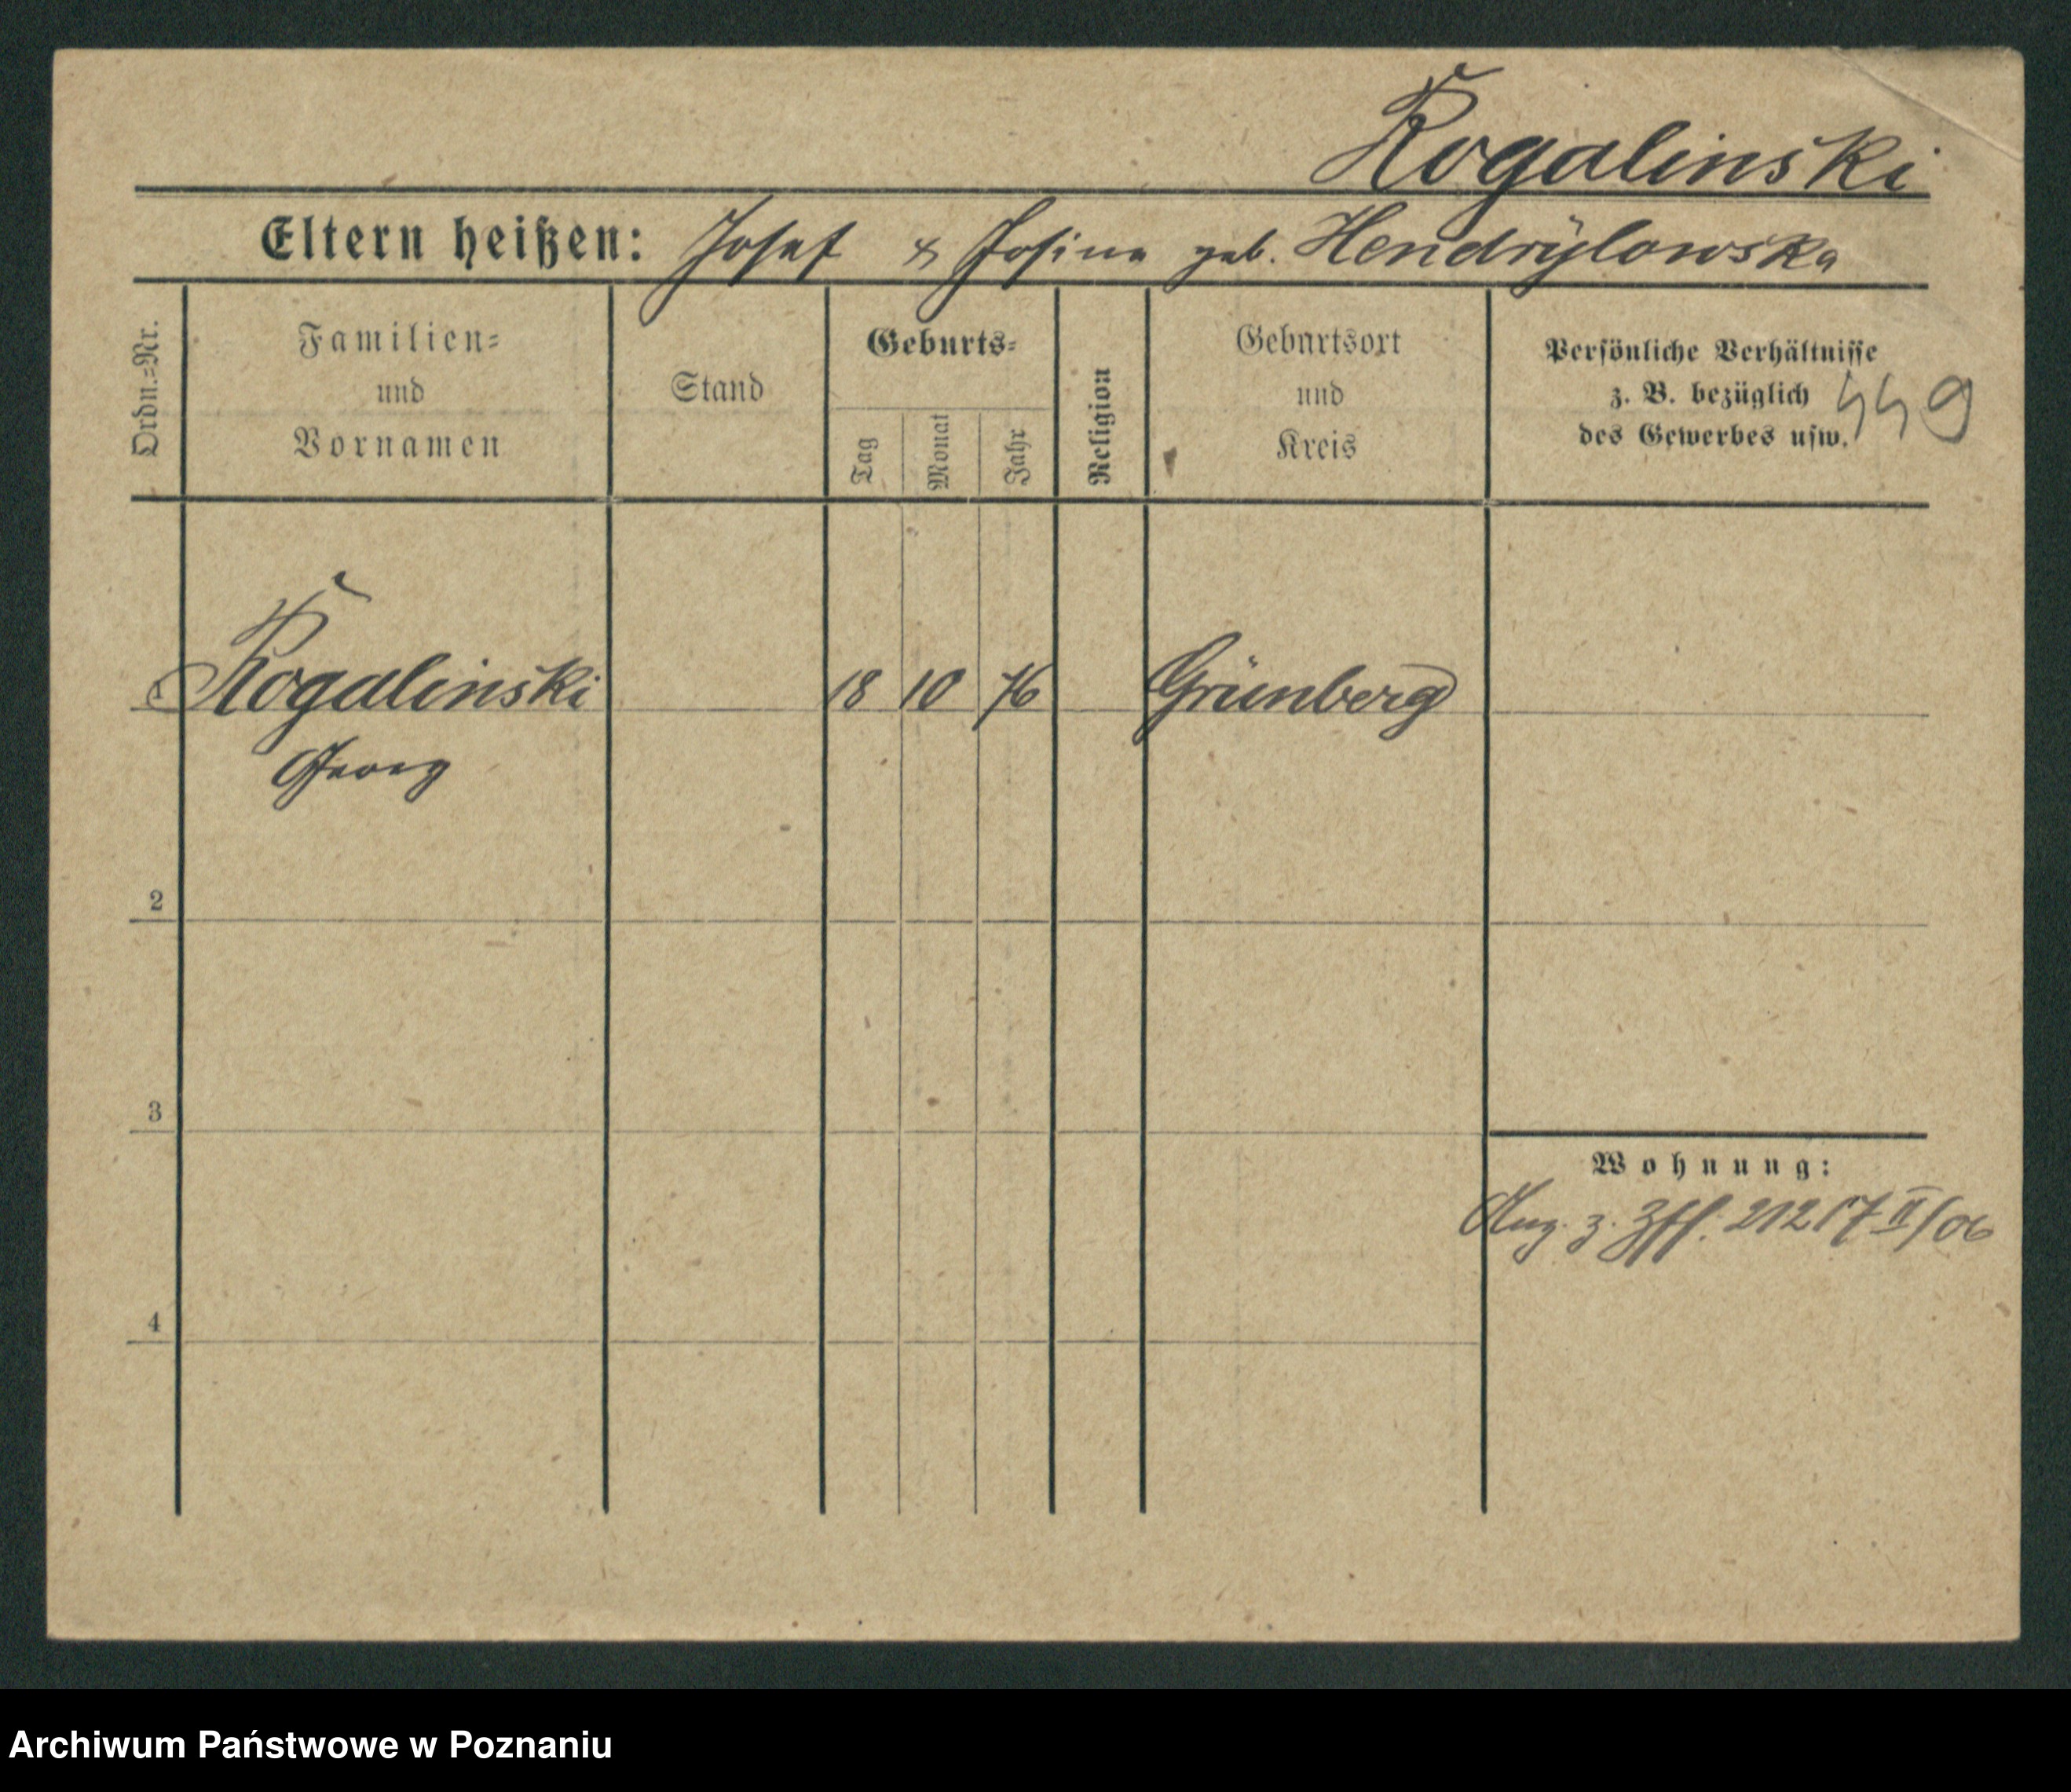 Rogalinski
Eltern heißen: Josef & Josina geb. Hendrÿlowska
Ordn.=Nr.
Familien=
und
Vornamen
Stand
Geburts=
Tag
Monat
Jahr
Religion
Geburtsort
und
Kreis
Persönliche Verhältnisse
z. B. bezüglich
des Gewerbes usw.
449
1 Rogalinski 18 10 76 Grünberg
Georg
2
3
4
Wohnung:
z. 212 17 II/06
Archiwum Państwowe w Poznaniu